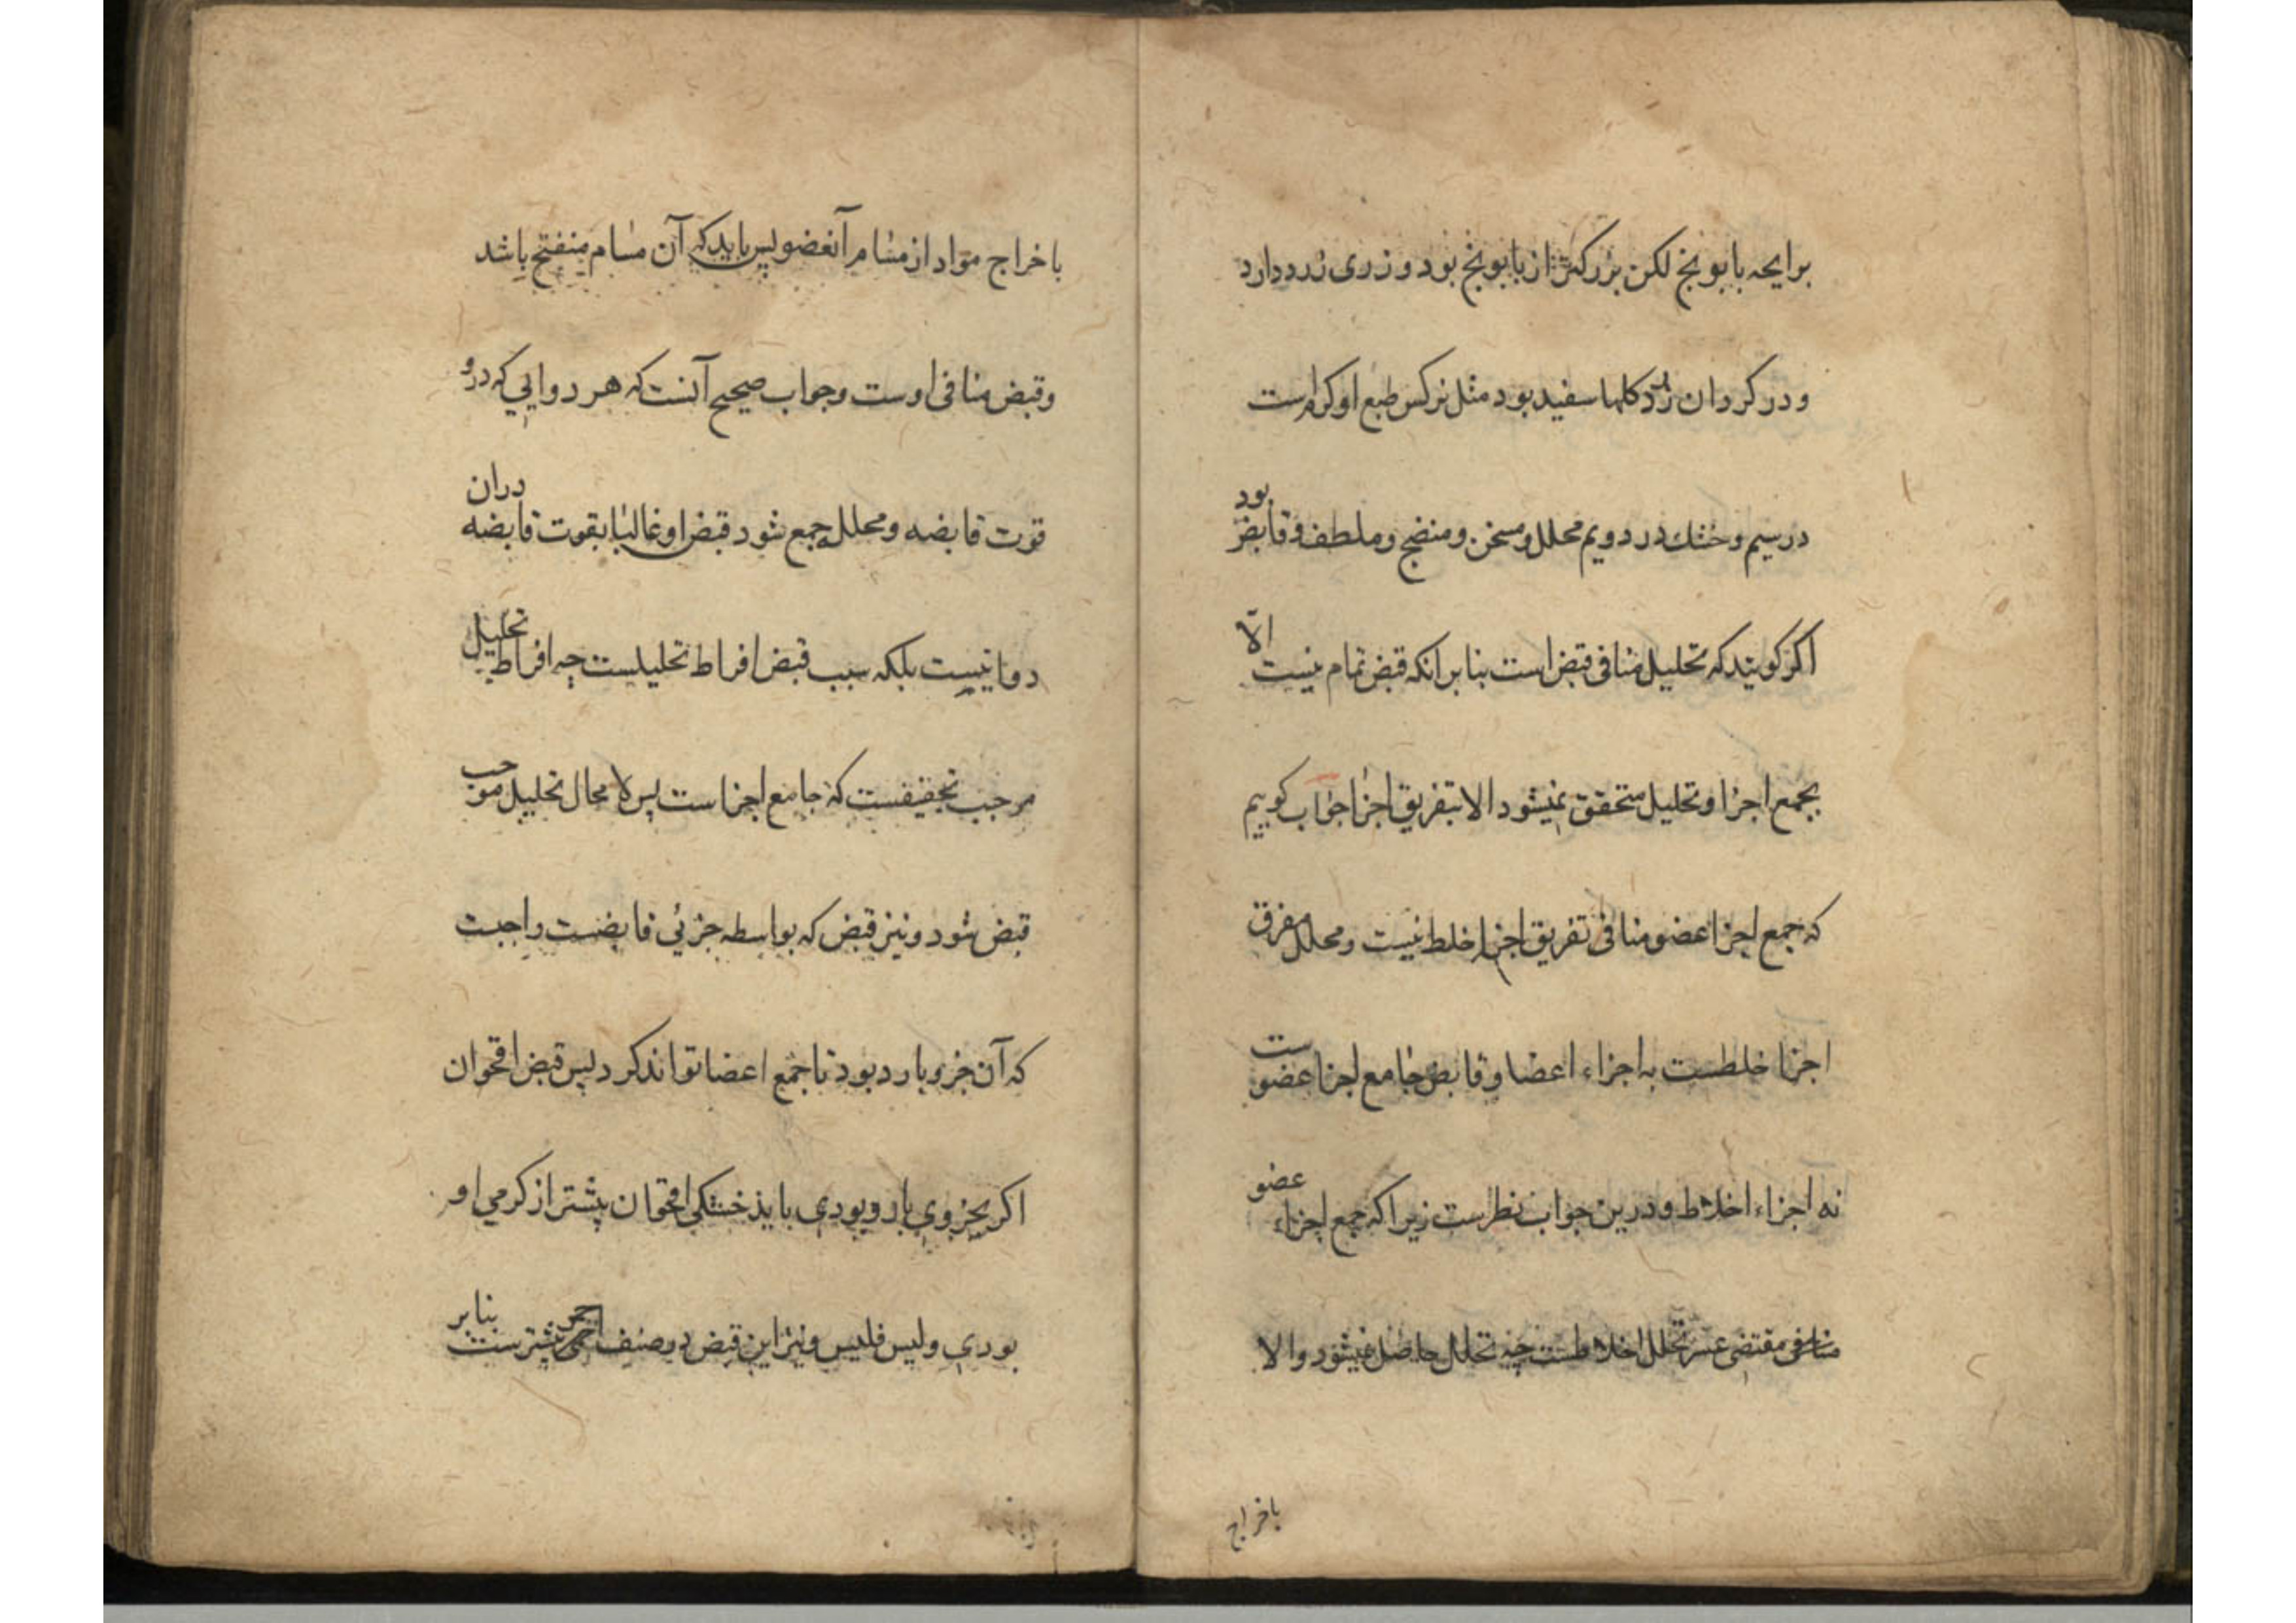 برایحه بابونج لکن بزرکتر از بابونج بود و زری زرد دارد
و در کردان زرد کلها سفید بود مثل نرکس طبع او کرم است
در سیم و خشك در دویم محلل و مسخن و منضج و ملطف و قابض بود
اکر کویند که تحلیل منافی قبض است بنا بر انکه قبض تمام نیست الّا
بجمع اجزا و تحلیل متحقق نمیشود الا بتفریق اجزا جواب کوییم
که جمع اجزا عضو منافی تفریق اجزا خلط نیست و محلل مفرق
اجزا خلطست به اجزاء اعضا و قابض جامع اجزا عضو ست
نه اجزاء اخلاط و درین جواب نظرست زیرا که جمع اجزاء عضو
منافی مقتضی عسر تحلل اخلاطست چه تحلل حاصل نمیشود والا
باخراج
باخراج مواد از مسام آنعضو پس باید که آن مسام منفتح باشد
و قبض منافی اوست و جواب صحیح آنست که هر دوایی که درو
قوت قابضه و محلله جمع شود قبض او غالبا بقوت قابضه دران
دوا نیست بلکه سبب قبض افراط تحلیلست چه افراط تحلیل
موجب تجفیفست که جامع اجزا است پس لا محال تحلیل موجب
قبض شود و نیز قبض که بواسطه جزئی قابضست واجبست
که آن جزو بارد بود تا جمع اعضا تواند کرد پس قبض اقحوان
اکر بجزوی بارد بودی باید خشکی اقحوان پشتر از کرمی او
بودی و لیس فلیس و نیز این قبض در صنف احمر پشترست بنابر